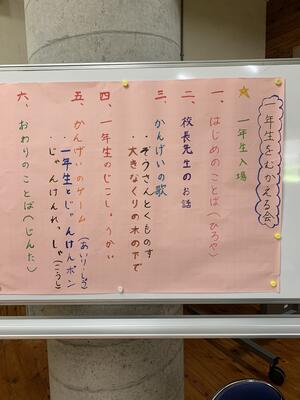 一年生をむかえる会
☆ 一年生入場
一、はじめのことば(ひろや)
二、校長先生のお話
三、かんげいの歌
・ぞうさんとくものす
・大きなくりの木の下で
四、一年生のじこしょうかい
五、かんげいのゲーム(あいり)
・一年生とじゃんけんポン
・じゃんけんれっしゃ(こうし)
六、おわりのことば(じんた)